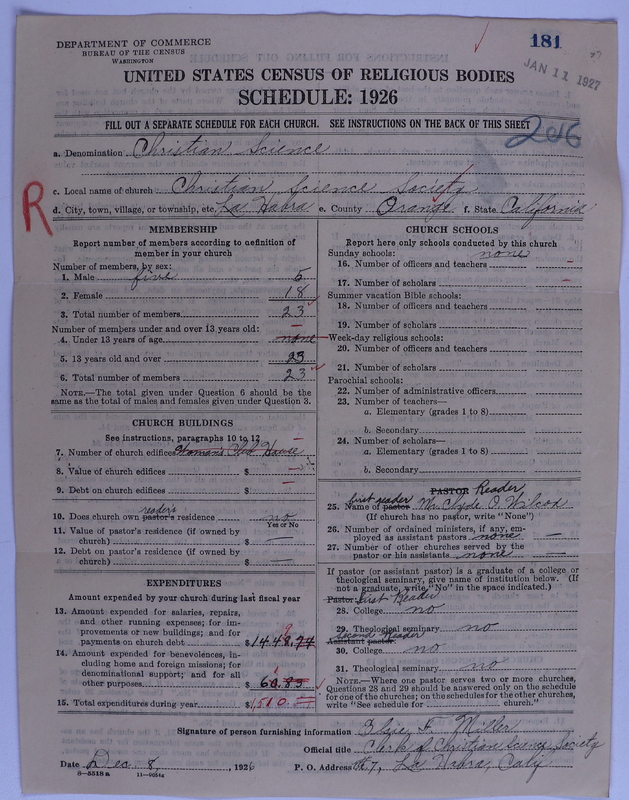 DEPARTMENT OF COMMERCE
BUREAU OF THE CENSUS
WASHINGTON
181
JAN 11 1927
UNITED STATES CENSUS OF RELIGIOUS BODIES
SCHEDULE: 1926
FILL OUT A SEPARATE SCHEDULE FOR EACH CHURCH. SEE INSTRUCTIONS ON THE BACK OF THIS SHEET
206
a. Denomination Christian Science
c. Local name of church Christian Science Society
R
d. City, town, village, or township, etc. La Habra e. County Orange f. State California
MEMBERSHIP
Report number of members according to definition of member in your church
Number of members, by sex:
1. Male five 5
2. Female 18
3. Total number of members 23
Number of members under and over 13 years old:
4. Under 13 years of age none
5. 13 years old and over 23
6. Total number of members 23
NOTE.—The total given under Question 6 should be the
same as the total of males and females given under Question 3.
CHURCH BUILDINGS
See instructions, paragraphs 10 to 12
7. Number of church edifices Womans Club House
8. Value of church edifices $
9. Debt on church edifices $
reader's
10. Does church own pastor's residence no
Yes or No
11. Value of pastor's residence (if owned by
church) $ —
12. Debt on pastor's residence (if owned by
church) $ —
EXPENDITURES
Amount expended by your church during last fiscal year
13. Amount expended for salaries, repairs,
and other running expenses; for im-
provements or new buildings; and for
payments on church debt $1448.74
14. Amount expended for benevolences, in-
cluding home and foreign missions; for
denominational support; and for all
other purposes $ 60.83
15. Total expenditures during year $1510
CHURCH SCHOOLS
Report here only schools conducted by this church
Sunday schools: none
16. Number of officers and teachers —
17. Number of scholars —
Summer vacation Bible schools:
18. Number of officers and teachers
19. Number of scholars
Week-day religious schools:
20. Number of officers and teachers
21. Number of scholars
Parochial schools:
22. Number of administrative officers
23. Number of teachers—
a. Elementary (grades 1 to 8)
b. Secondary
24. Number of scholars—
a. Elementary (grades 1 to 8)
b. Secondary
PASTOR Reader
first reader
25. Name of pastor Mr Clyde O. Wilcox
(If church has no pastor, write "None")
26. Number of ordained ministers, if any, em-
ployed as assistant pastors none —
27. Number of other churches served by the
pastor or his assistants none
If pastor (or assistant pastor) is a graduate of a college or
theological seminary, give name of institution below. (If
not a graduate, write "No" in the space indicated.)
Pastor: First Reader
28. College no
29. Theological seminary no
Second Reader
Assistant pastor:
30. College no
31. Theological seminary no
NOTE.—Where one pastor serves two or more churches,
Questions 28 and 29 should be answered only on the schedule
for one of the churches; on the schedules for the other churches,
write "See schedule for church."
Signature of person furnishing information F. Miller
Official title Clerk of Christian Science Society
Date Dec 8, 1926 P. O. Address La Habra, Caly
8—5518a 11—9034a